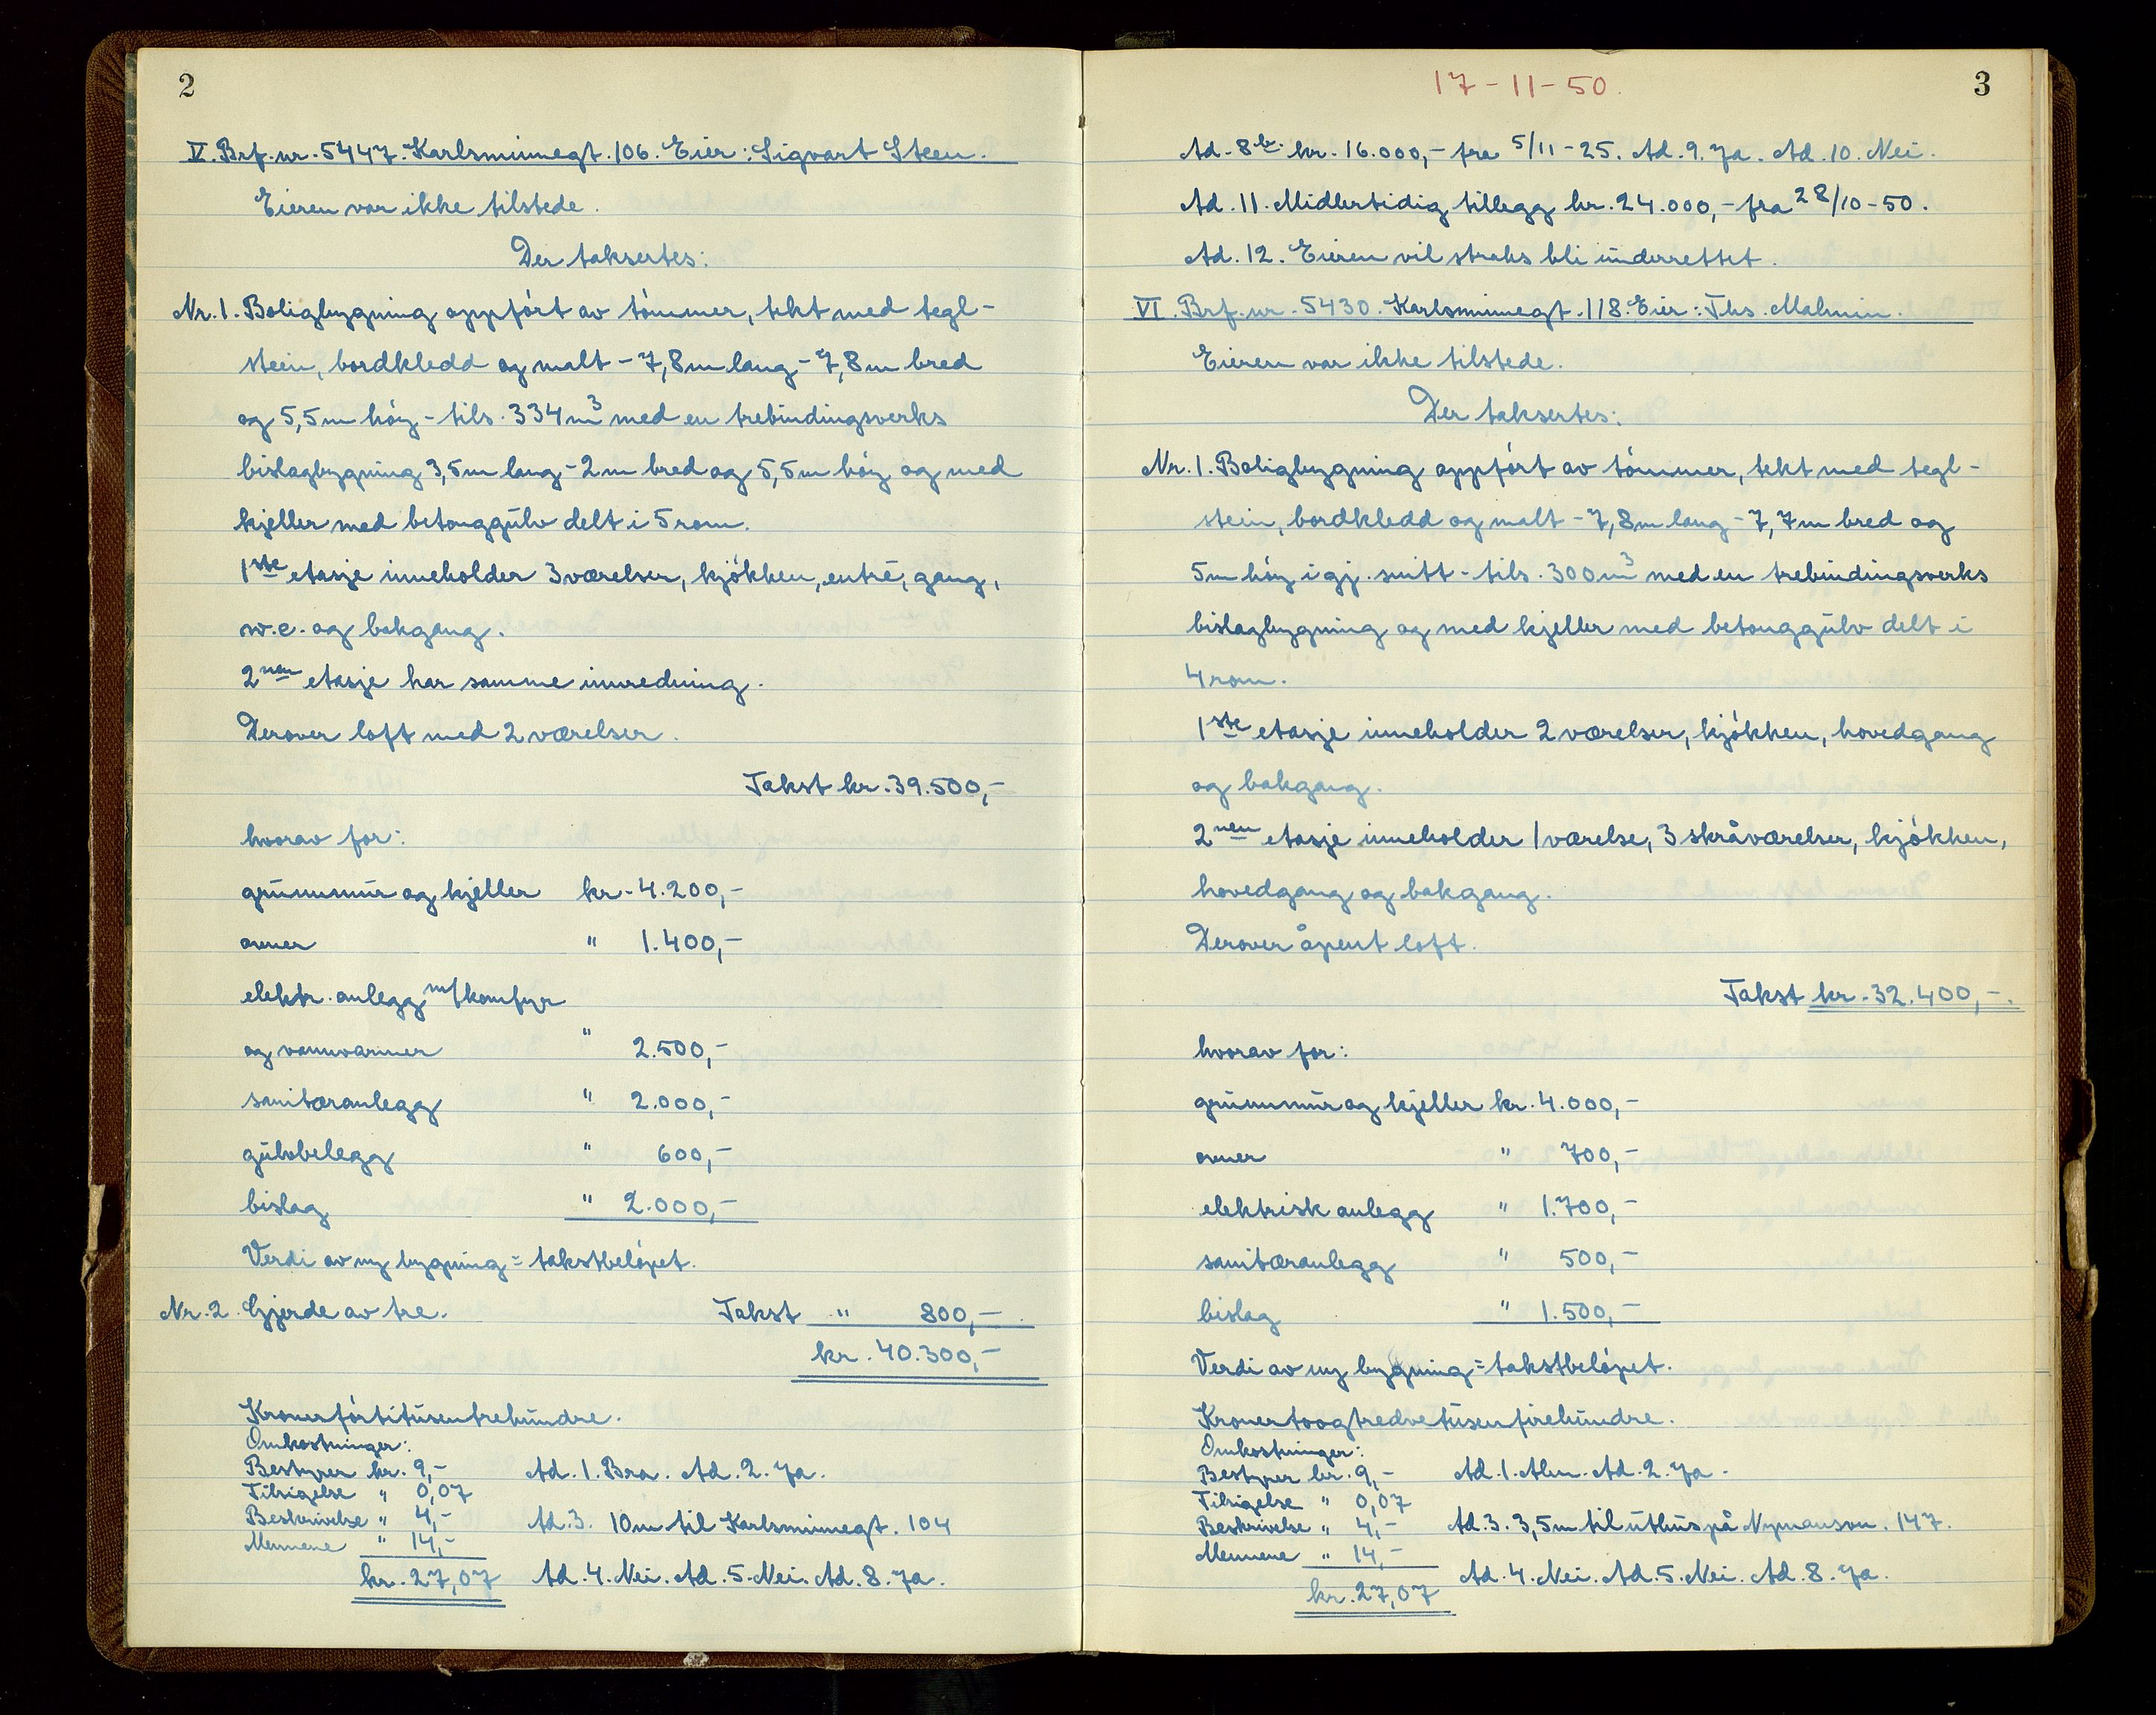 2
V. Brf.nr. 5447. Karlsminnegt. 106. Eier: Sigvart Steen.
Eieren var ikke tilstede.
Der taksertes:
Nr. 1. Boligbygning oppført av tømmer, tekt med tegl-
stein, bordkledd og malt - 7,8m lang - 7,8m bred
og 5,5m høy - tils. 334m³ med en trebindingsverks
bislagbygning 3,5m lang - 2m bred og 5,5m høy og med
kjeller med betonggulv delt i 5 rom.
1ste etasje inneholder 3 værelser, kjøkken, entré, gang,
w.c. og bakgang.
2nen etasje har samme innredning.
Derover loft med 2 værelser.
Takst kr. 39.500,-
hvorav for:
grunnmur og kjeller kr. 4.200,-
ovner " 1.400,-
elektr. anlegg m/komfyr
og vannvarmer " 2.500,-
sanitæranlegg " 2.000,-
gulvbelegg " 600,-
bislag " 2.000,-
Verdi av ny bygning = takstbeløpet.
Nr. 2. Gjerde av tre. Takst " 800,-
kr. 40.300,-
Kroner førtitusentrehundre.
Omkostninger:
Bestyrer kr. 9,- Ad. 1. Bra. Ad. 2. Ja.
Tilsigelse " 0,07
Beskrivelse " 4,- Ad. 3. 10m til Karlsminnegt. 104
Mennene " 14,-
kr. 27,07 Ad. 4. Nei. Ad. 5. Nei. Ad. 8. Ja.
17-11-50.
3
Ad. 8b. kr. 16.000,- fra 5/11-25. Ad. 9. Ja. Ad. 10. Nei.
Ad. 11. Midlertidig tillegg kr. 24.000,- fra 28/10-50.
Ad. 12. Eieren vil straks bli underrettet.
VI. Brf.nr. 5430. Karlsminnegt. 118. Eier: Ths. Malmin.
Eieren var ikke tilstede.
Der taksertes:
Nr. 1. Boligbygning oppført av tømmer, tekt med tegl-
stein, bordkledd og malt - 7,8m lang - 7,7m bred og
5m høy i gj. snitt - tils. 300m³ med en trebindingsverks
bislagbygning og med kjeller med betonggulv delt i
4 rom.
1ste etasje inneholder 2 værelser, kjøkken, hovedgang
og bakgang.
2nen etasje inneholder 1 værelse, 3 skråværelser, kjøkken,
hovedgang og bakgang.
Derover åpent loft.
Takst kr. 32.400,-.
hvorav for:
grunnmur og kjeller kr. 4.000,-
ovner " 700,-
elektrisk anlegg " 1.700,-
sanitæranlegg " 500,-
bislag " 1.500,-
Verdi av ny bygning = takstbeløpet.
Kroner toogtredvetusenfirehundre.
Omkostninger:
Bestyrer kr. 9,- Ad. 1. Alm. Ad. 2. Ja.
Tilsigelse " 0,07
Beskrivelse " 4,- Ad. 3. 3,5m til uthus på Nymansv. 147.
Mennene " 14,-
kr. 27,07 Ad. 4. Nei. Ad. 5. Nei. Ad. 8. Ja.